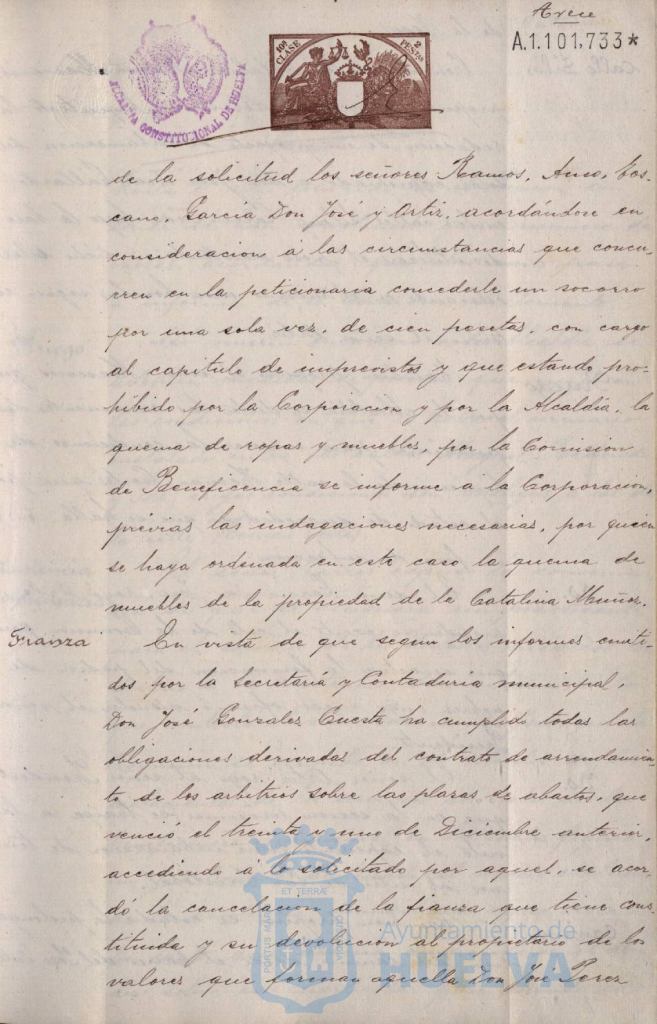 Trece
A.1.101,733*
10ª CLASE 2 PESETAS
ALCALDIA CONSTITUCIONAL DE HUELVA
de la solicitud los señores Ramos, Auso, Tos-
cano, García Don José y Ortiz, acordándose en
consideracion á las circunstancias que concu-
rren en la peticionaria concederle un socorro
por una sola vez, de cien pesetas, con cargo
al capitulo de imprevistos y que estando pro-
hibido por la Corporacion y por la Alcaldía, la
quema de ropas y muebles, por la Comision
de Beneficencia se informe á la Corporacion,
prévias las indagaciones necesarias, por quien
se haya ordenada en este caso la quema de
muebles de la propiedad de la Catalina Muñoz.
Fianza
En vista de que segun los informes emiti-
dos por la Secretaría y Contaduria municipal,
Don José Gonzalez Cuesta ha cumplido todas las
obligaciones derivadas del contrato de arrendamien-
to de los arbitrios sobre las plazas de abastos, que
venció el treinta y uno de Diciembre anterior,
accediendo á lo solicitado por aquel, se acor-
dó la cancelacion de la fianza que tiene cons-
tituida y su devolucion al propietario de los
valores que forman aquella Don José Perez
ET TERRÆ
PORTUS MARIS
CUSTODIA
Ayuntamiento de
HUELVA